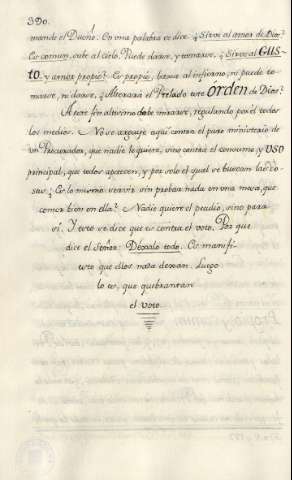 390.
mande el Dueño. En una palabra se dice. ¿Sirve al amor de Dios?
Es comun, sube al Cielo. Puede darse, y tomarse. ¿Sirve al GUS-
TO, y amor propio? Es propio, baxa al infierno, ni puede to-
marse, ni darse. ¿Alterará el Prelado este orden de Dios?
A este fin altisimo debe mirarse, regulando por él todos
los medios. No se arguye aqui contra el puro ministerio de
un Procurador, que nadie lo quiere, sino contra el consumo, y USO
principal, que todos apetecen, y por solo el qual se buscan las co-
sas. ¿Es lo mismo servir sin probar nada en una mesa, que
comer bien en ella? Nadie quiere el predio, sino para
sí. Y esto se dice que es contra el voto. Por que
dice el Señor: Déxalo todo. Es manifi-
esto que ellos nada dexan. Luego
lo es, que quebrantan
el voto.